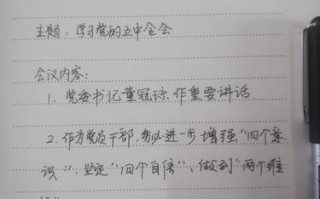 主题：学习党的五中全会
会议内容：
1、党委书记董冠琼 作重要讲话
2、作为党员干部，务必进一步增强“四个意
识”、坚定“四个自信”、做到“两个维